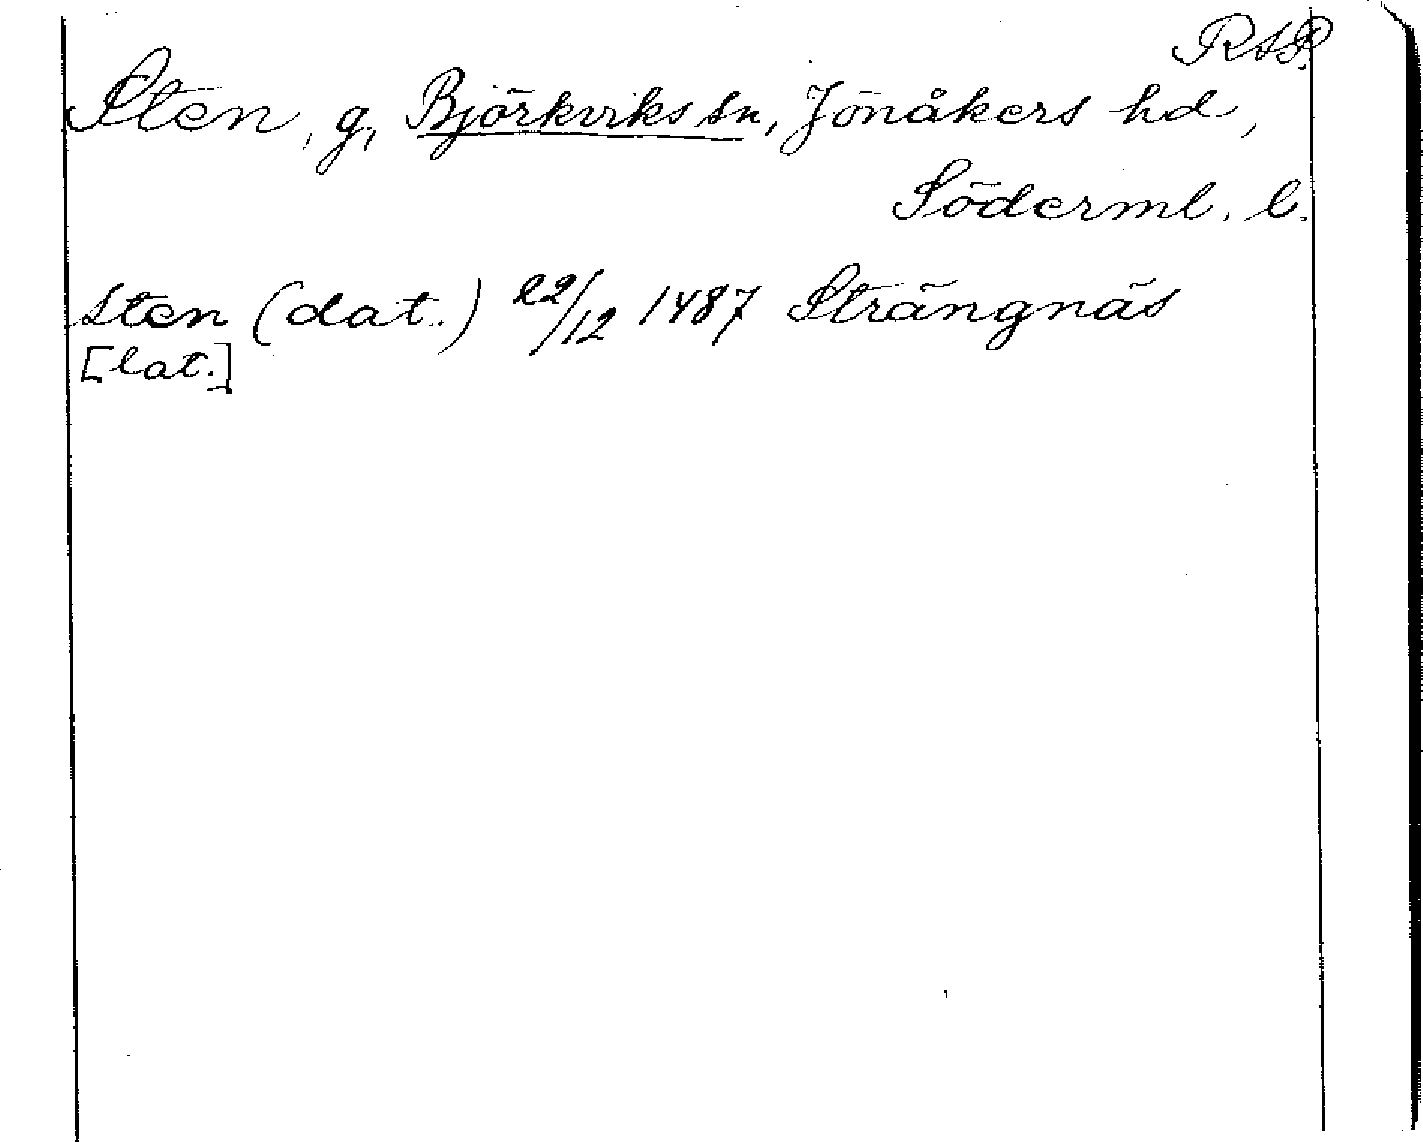 RAP.
Sten, g, Björkviks sn, Jönåkers hd,
Söderml. l.
Sten (dat.) 22/12 1487 Strängnäs
[lat.]